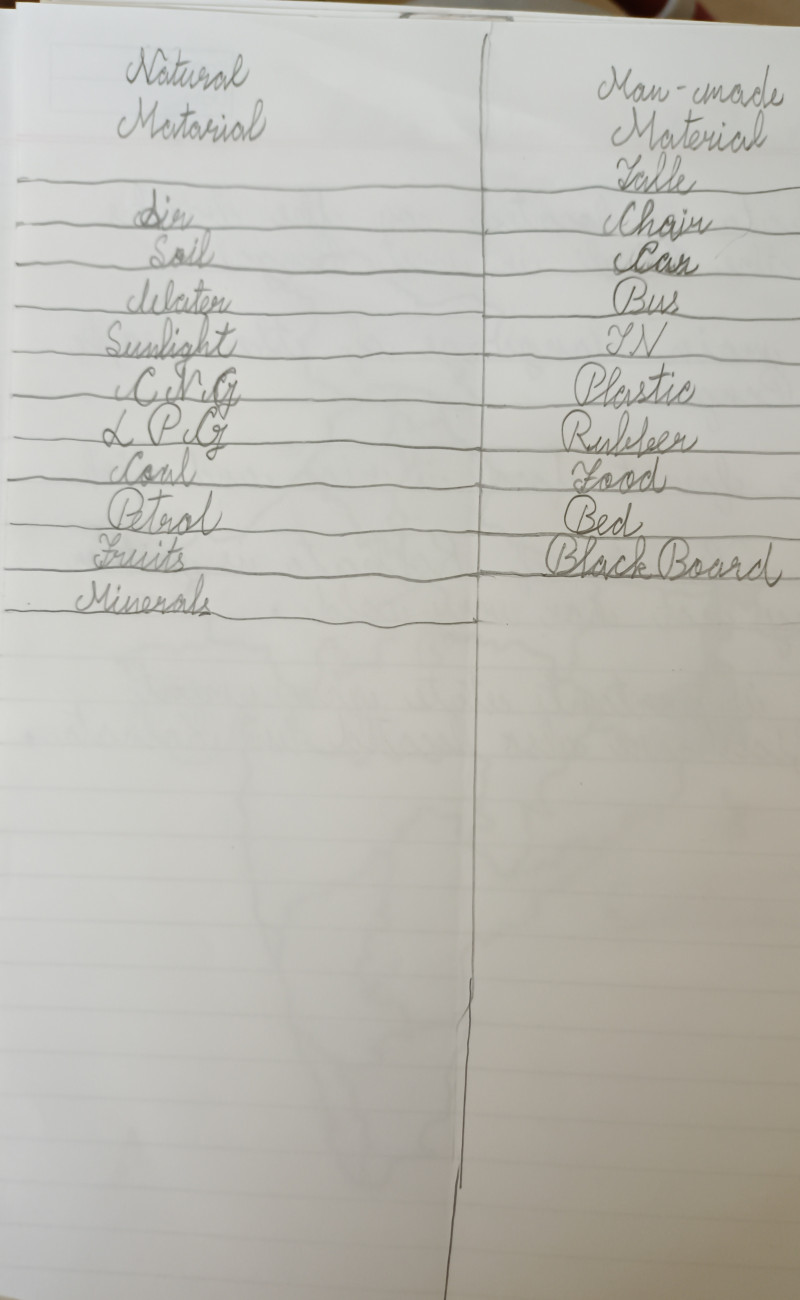 Natural
Matarial
Air
Soil
Water
Sunlight
C N G
L P G
Coal
Petrol
Fruits
Minerals
Man-made
Material
Table
Chair
Car
Bus
Plastic
Rubber
Food
Bed
Black Board